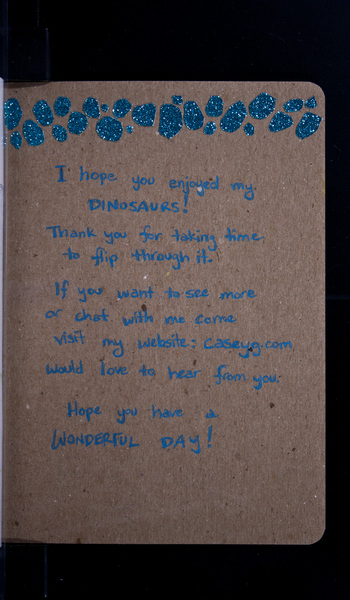 I hope you enjoyed my
DINOSAURS!
Thank you for taking time
to flip through it.
If you want to see more
or chat with me come
visit my website: caseyg.com
would love to hear from you.
Hope you have a
WONDERFUL DAY!